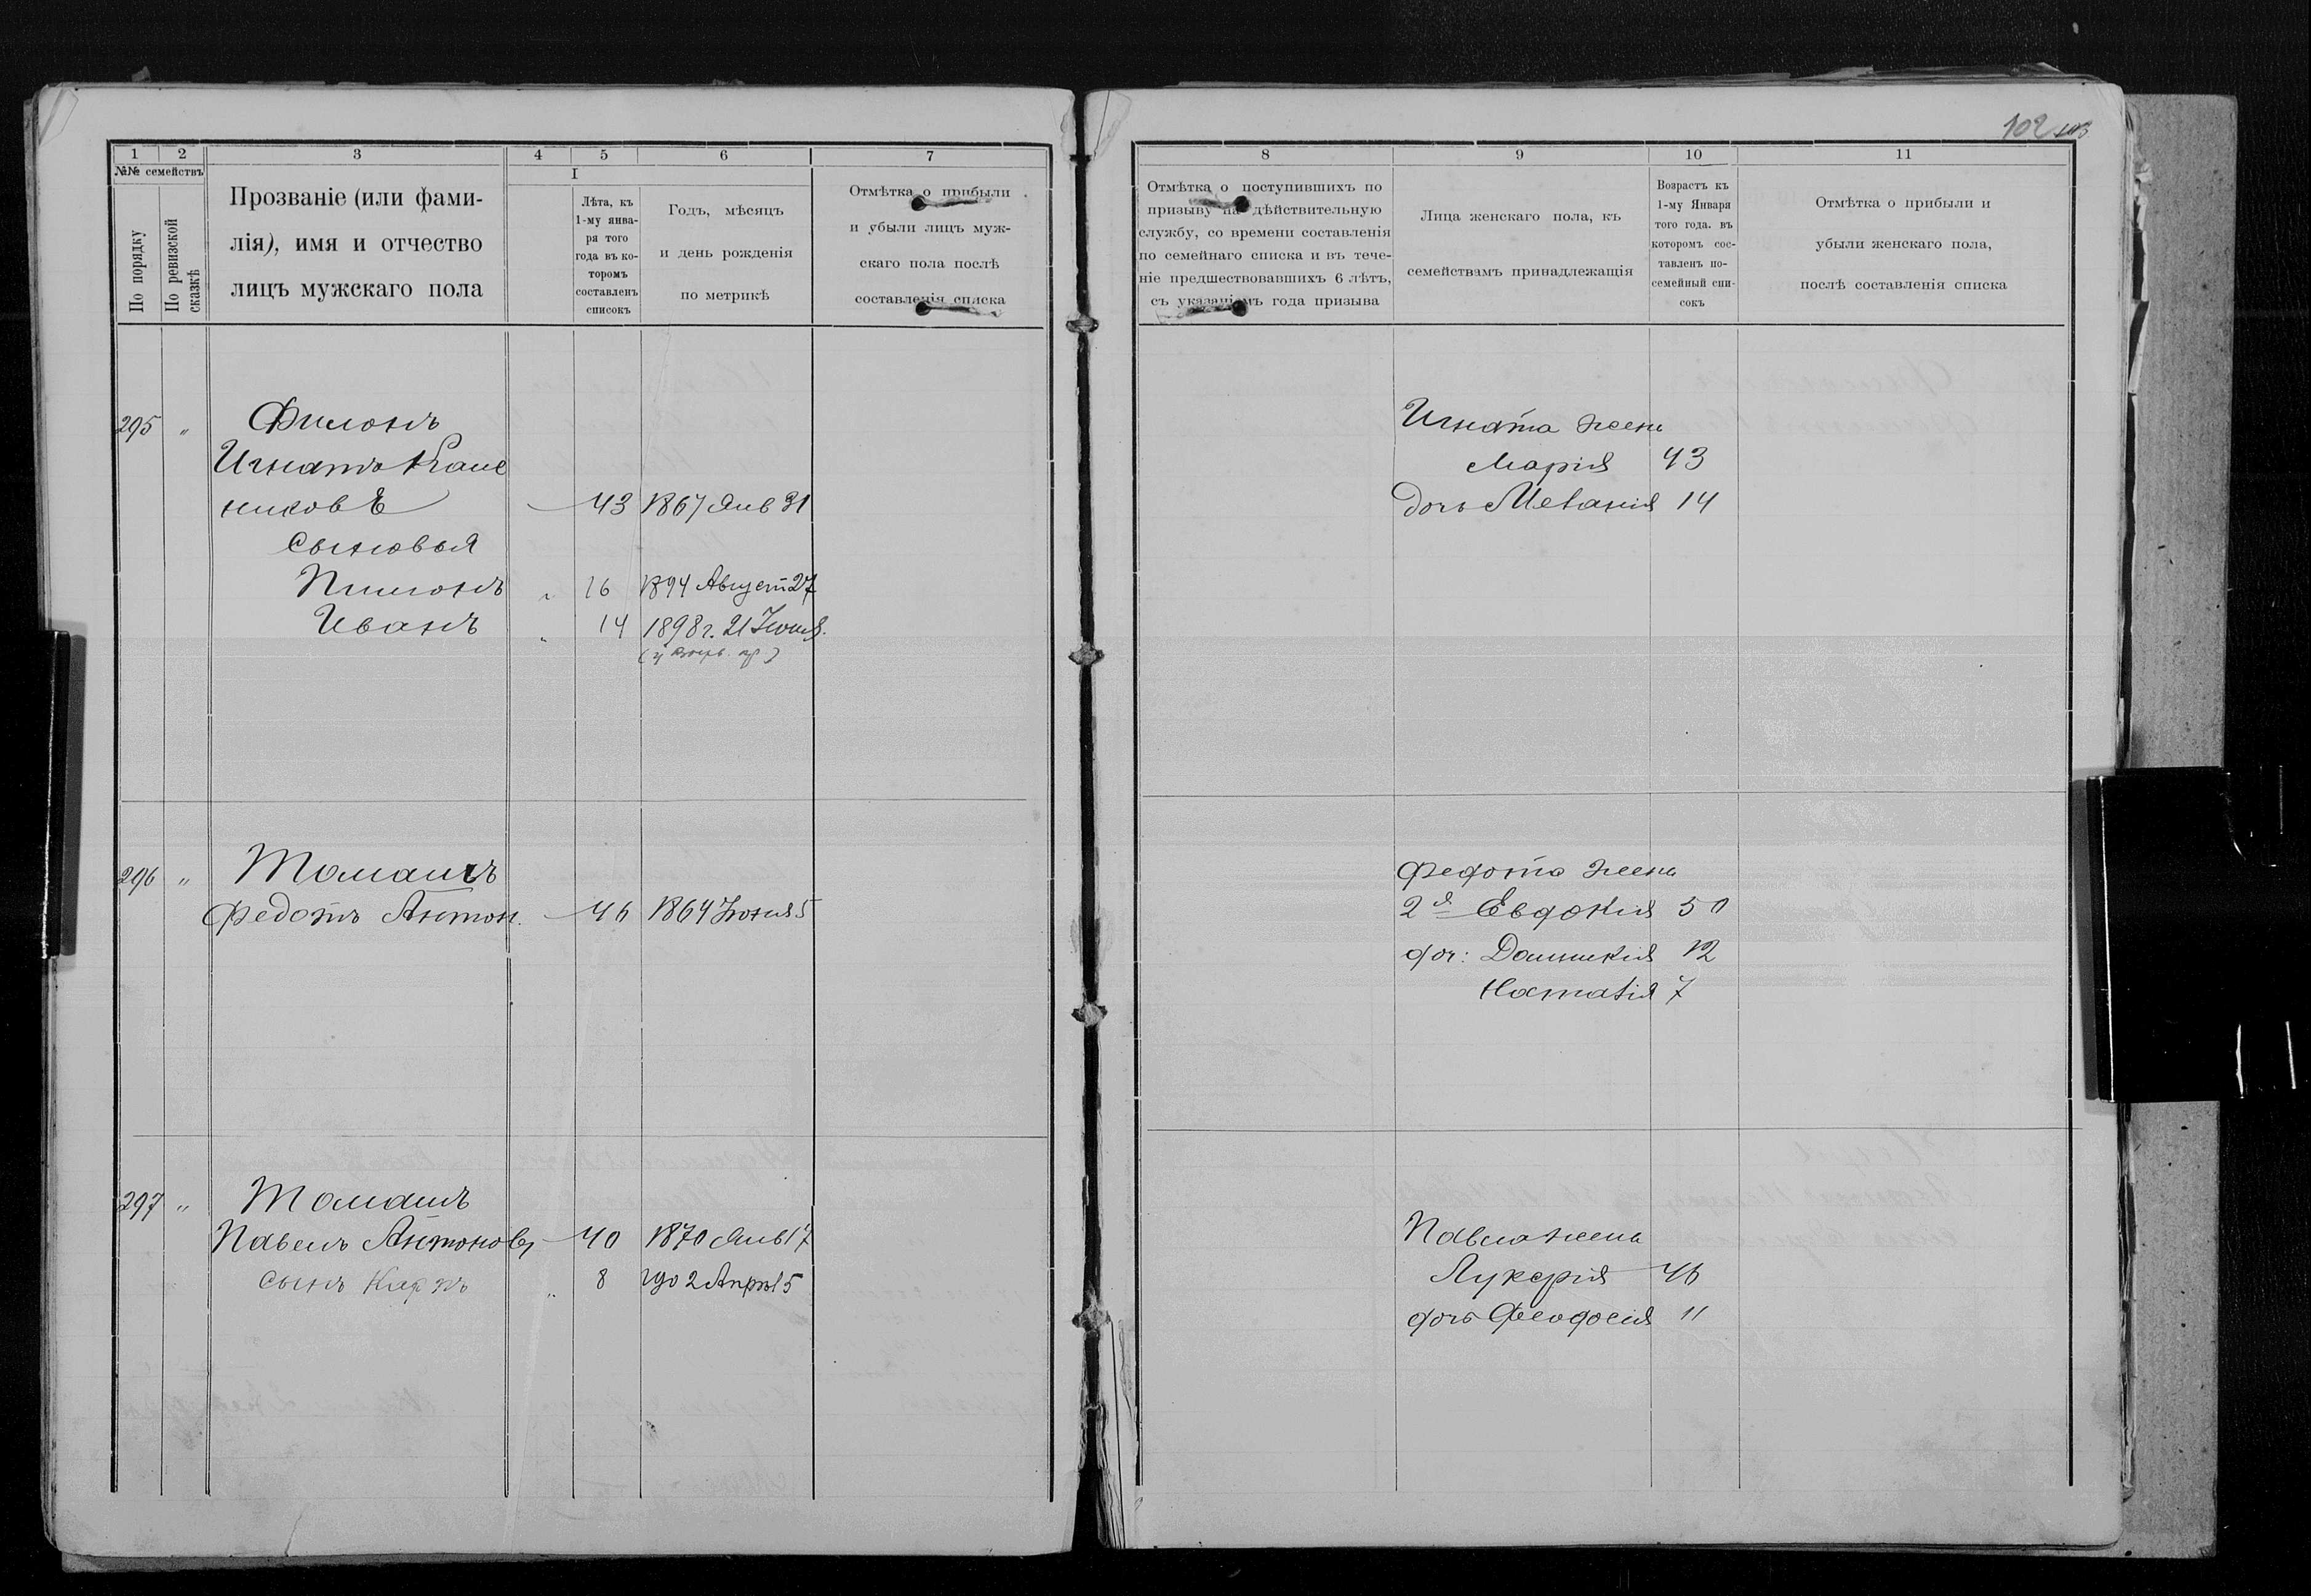 102 103
1 2 3 4 5 6 7
№№ семействъ
По порядку
По ревизской сказкѣ
Прозваніе (или фами-
лія), имя и отчество
лицъ мужскаго пола
I
Лѣта, къ
1-му янва-
ря того
года въ ко-
торомъ
составленъ
списокъ
Годъ, мѣсяцъ
и день рожденія
по метрикѣ
Отмѣтка о прибыли
и убыли лицъ муж-
скаго пола послѣ
составленія списка
295 „ Филонъ
Игнатъ
43 1867 Янв 31
Сыновья
16 1894 Август 27
Иванъ „ 14 1898 г. 21 Іюня.
296 „ Томашъ
Федотъ Антон. 46 1864 Іюня 5
297 „ Томашъ
Павелъ Антоновъ 40 1870 Янв 17
сынъ Карпъ „ 8 190 2 Апрѣл 5
8 9 10 11
Отмѣтка о поступившихъ по
призыву на дѣйствительную
службу, со времени составленія
по семейнаго списка и въ тече-
ніе предшествовавшихъ 6 лѣтъ,
съ указаніемъ года призыва
Лица женскаго пола, къ
семействамъ принадлежащія
Возрастъ къ
1-му Января
того года. въ
которомъ сос-
тавленъ по-
семейный спи-
сокъ
Отмѣтка о прибыли и
убыли женскаго пола,
послѣ составленія списка
Игната жена
Марія 43
дочь Меланія 14
Федота жена
2я Евдокія 50
доч: 12
Наталія 7
Павла жена
Лукерія 46
дочь Феодосія 11